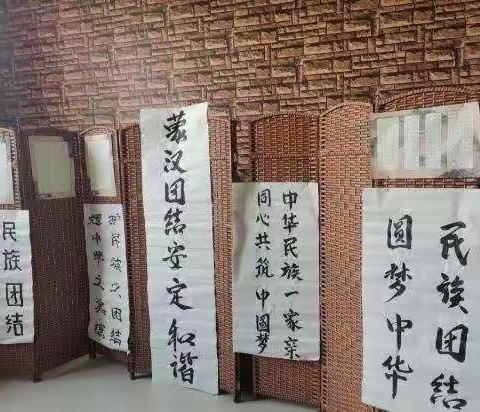 民族团结
民族之团结
中华之美
蒙汉团结安定和谐
中华民族一家亲
同心共筑中国梦
民族团结
圆梦中华